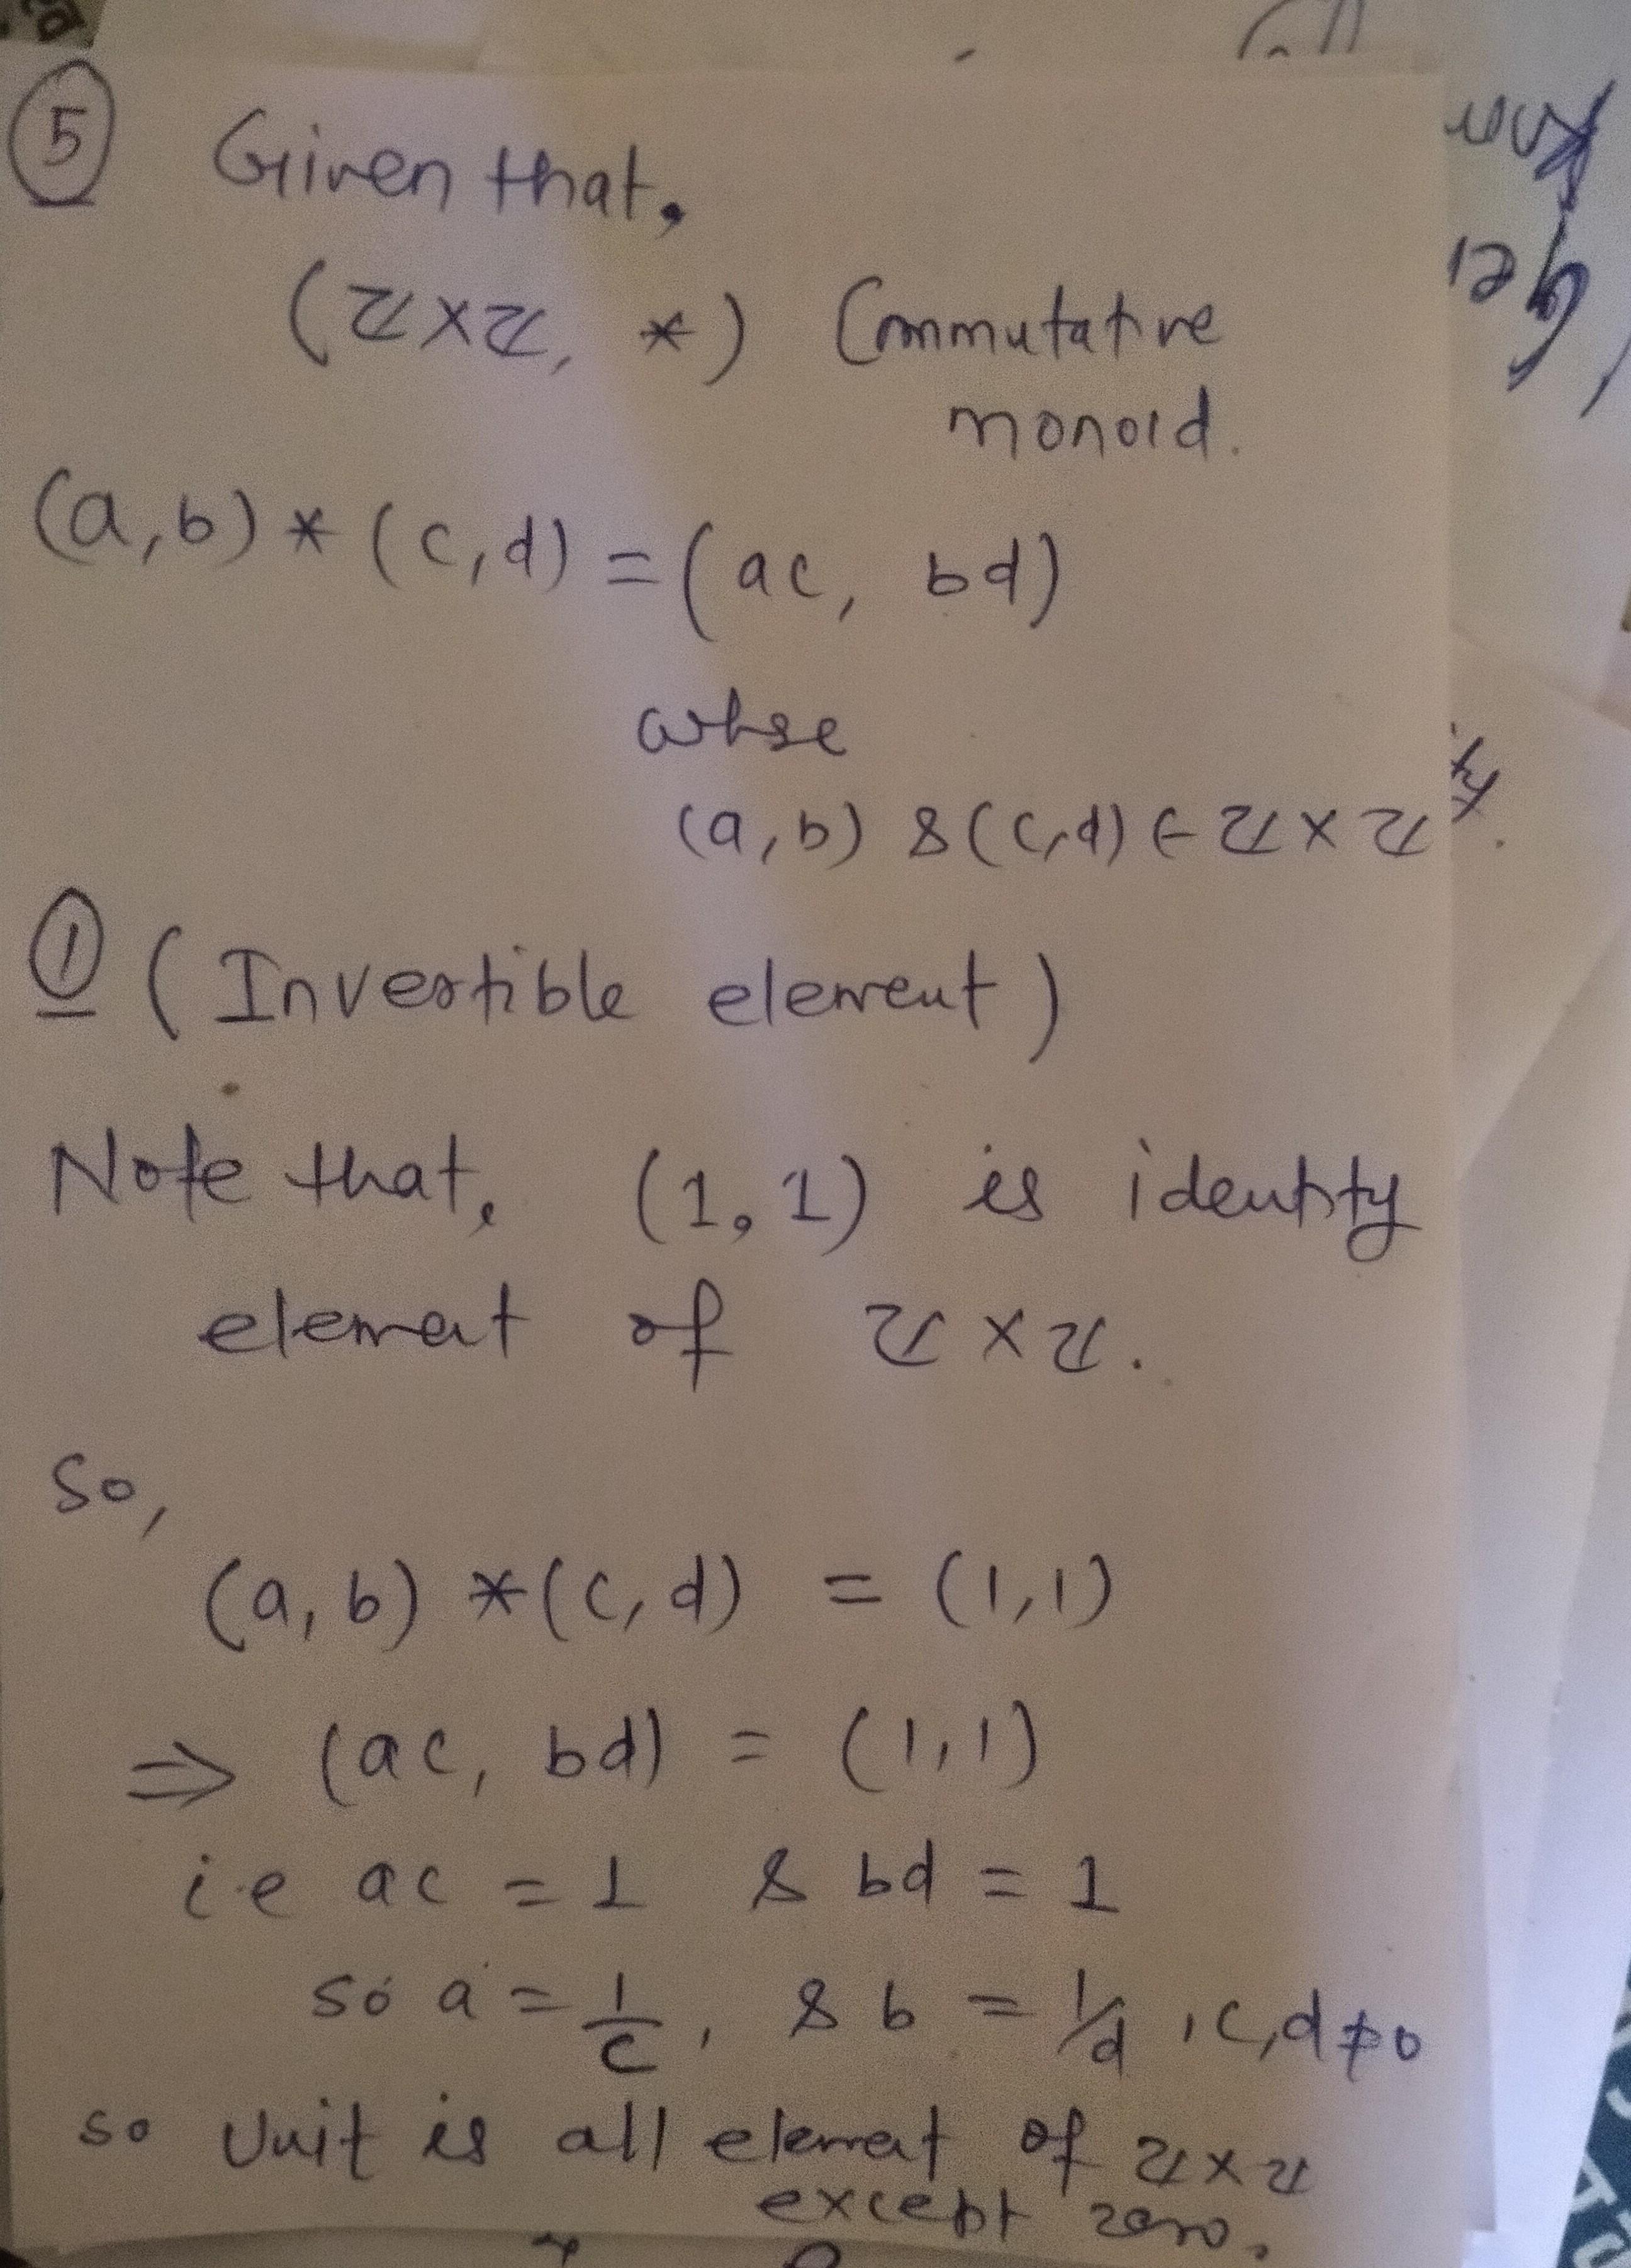 ⑤ Given that,
(ℤ×ℤ, *) Commutative
monoid.
(a,b) * (c,d) = (ac, bd)
whse
(a,b) & (c,d) ∈ ℤ×ℤ.
① (Invertible element)
Note that, (1,1) is identity
element of ℤ×ℤ.
So,
(a,b) * (c,d) = (1,1)
⇒ (ac, bd) = (1,1)
i.e ac = 1 & bd = 1
so a = 1/c, & b = 1/d, c,d≠0
so Unit is all element of ℤ×ℤ
except zero.